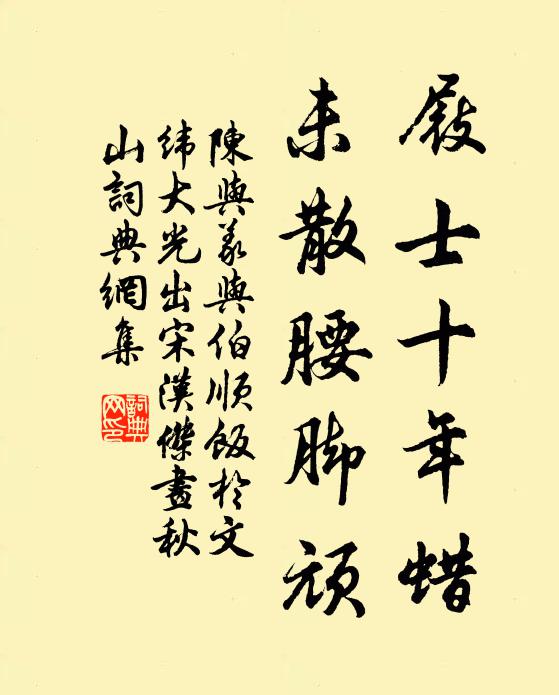 屐士十年蜡
未散腰脚頑
陳與義與伯順飯於文
緯大光出宋漢傑畫秋
山詞典網集
詞典网印